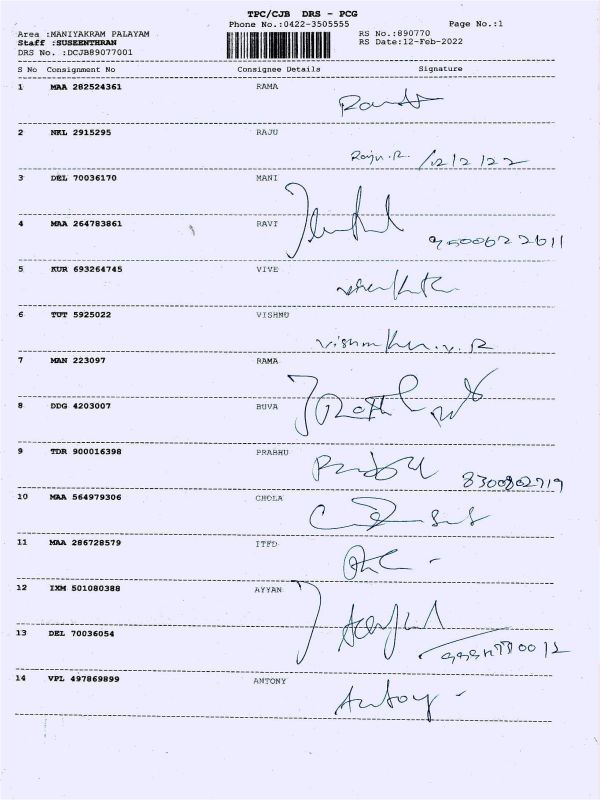 TPC/CJB DRS - PCG
Phone No.:0422-3505555
Page No.:1
Area :MANIYAKRAM PALAYAM
Staff :SUSEENTHRAN
DRS No. :DCJB89077001
RS No.:890770
RS Date:12-Feb-2022
S No Consignment No Consignee Details Signature
1 MAA 282524361 RAMA
2 NKL 2915295 RAJU
Raju.R. /12/2/22
3 DEL 70036170 MANI
4 MAA 264783861 RAVI
9500622611
5 KUR 693264745 VIVE
6 TUT 5925022 VISHNU
7 MAN 223097 RAMA
8 DDG 4203007 BUVA
9 TDR 900016398 PRABHU
Prabhu
10 MAA 564979306 CHOLA
11 MAA 286728579 ITFD
12 IXM 501080388 AYYAN
13 DEL 70036054
14 VPL 497869899 ANTONY
Antony